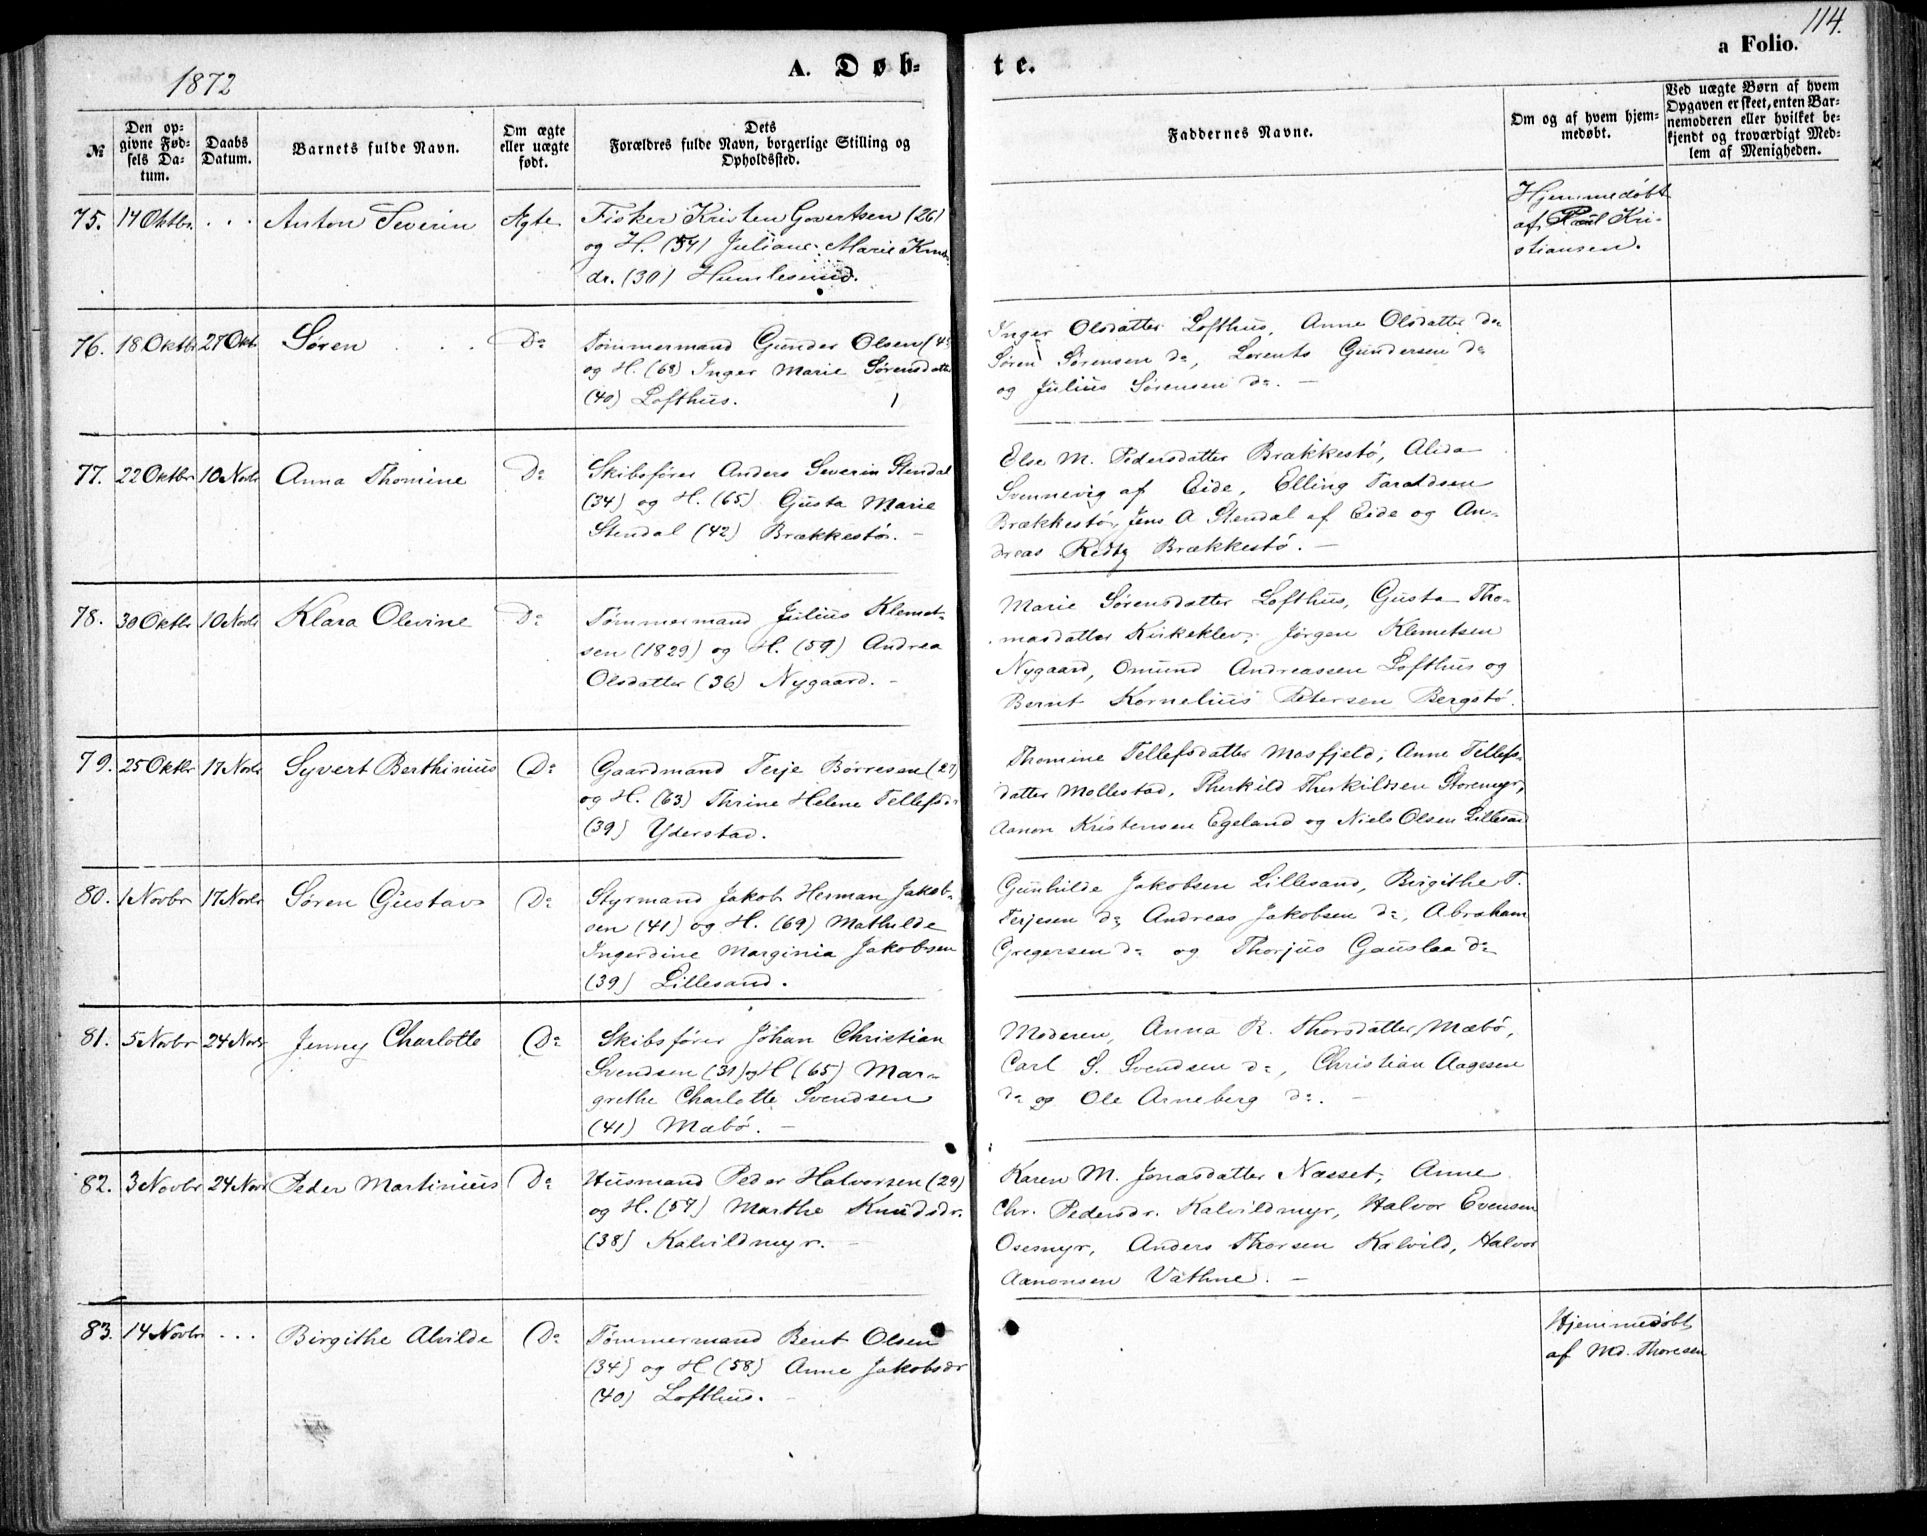 114.
1872
A. Døb-
te.
a Folio.
№
Den op-
givne Fød-
sels Da-
tum.
Daabs
Datum.
Barnets fulde Navn.
Om ægte
eller uægte
født.
Dets
Forældres fulde Navn, borgerlige Stilling og
Opholdssted.
Faddernes Navne.
Om og af hvem hjem-
medøbt.
Ved uægte Børn af hvem
Opgaven er skeet, enten Bar-
nemoderen eller hvilket be-
kjendt og troværdigt Med-
lem af Menigheden.
75. 17 Oktbr. . . . Anton Severin Ægte Fisker Kristen Govertsen (26)
og H. (54) Juliane Marie
dr. (30) Humlesund.
Hjemmedøbt
af Paul Kri-
stiansen.
76. 18 Oktbr 27 Okt. Søren . . . Do Tømmermand Gunder Olsen
og H. (68) Inger Marie Sørensdatter
(40) Lofthus.
Inger Olsdatter Lofthus, Anne Olsdatter do
Søren Sørensen do, Lorents Gundersen do
og Julius Sørensen do. —
77. 22 Oktbr 10 Novbr Anna Thomine Do Skibsfører Anders Severin Stendal
(34) og H. (65) Gusta Marie
Stendal (42) Brækkestø. —
Else M. Pedersdatter Brækkestø, Alida
Svennevig af Eide, Elling Taraldsen
Brækkestø, Jens A Stendal af Eide og An-
dreas Brækkestø. —
78. 30 Oktbr 10 Novbr Klara Olevine Do Tømmermand Julius Klemet-
sen (1829) og H. (59) Andrea
Olsdatter (36) Nygaard. —
Marie Sørensdatter Lofthus, Gusta Tho-
masdatter Kirkeklev, Jørgen Klemetsen
Nygaard, Omund Andreassen Lofthus og
Bernt Kornelius Petersen Bergstø.
79. 25 Oktbr 17 Novbr Syvert Berthinius Do Gaardmand Terje Børresen (27)
og H. (63) Thrine Helene Tellefsdr
(39) Yderstad.
Thomine Tellefsdatter Mosfjeld, Anne Tellefs-
datter Mollestad, Therkild Therkildsen Storemyr,
Aanon Kristensen Egeland og Niels Olsen Lillesand
80. 1 Novbr 17 Novbr Søren Gustav Do Styrmand Jakob Herman Jakob-
sen (41) og H. (69) Mathilde
Ingerdine Marginia Jakobsen
(39) Lillesand.
Gunhilde Jakobsen Lillesand, Birgithe T.
Terjesen do, Andreas Jakobsen do, Abraham
Gregersen do og Thorjus Gauslaa do
81. 5 Novbr 24 Novbr Jenny Charlotte Do Skibsfører Johan Christian
Svendsen (31) og H (65) Mar-
grethe Charlotte Svendsen
(41) Mæbø. —
Moderen, Anna R. Thorsdatter, Mæbø,
Carl S. Svendsen do, Christian Aagesen
do og Ole Arneberg do. —
82. 3 Novbr 24 Novbr Peder Martinius Do Husmand Peder Halvorsen (29)
og H. (57) Marthe Knudsdr.
(38) Kalvildmyr. —
Karen M. Jonasdatter Næsset, Anne
Chr. Pedersdr. Kalvildmyr, Halvor Evensen
Osesmyr, Anders Thorsen Kalvild, Halvor
Aanonsen Vathne. —
83. 14 Novbr . . . Birgithe Alvilde Do Tømmermand Bent Olsen
(34) og H (58) Anne Jakobsdr
(40) Lofthus.
Hjemmedøbt
af Md. Thoresen